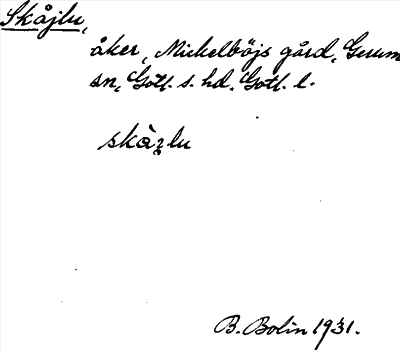 Skåjlu,
åker, Mickelböjs gård, Gerum
sn, Gotl. s. hd. Gotl. l.
skàꝛlu
B. Bolin 1931.